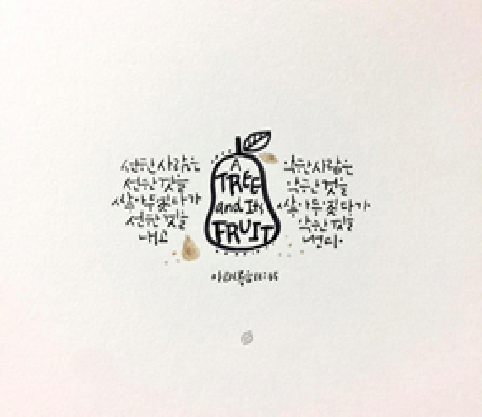 선한 사람은
선한 것을
쌓아두었다가
선한 것을
내고
A
TREE
and Its
FRUIT
악한 사람은
악한 것을
쌓아두었다가
악한 것을
낸다.
마태복음